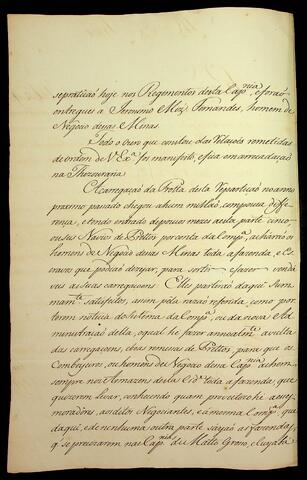 se praticaõ hoje nos Regimentos desta Cap.nia, e foraõ
entregues a Jeronimo Fernandes, homem de
Negocio desas Minas.
Todo o ouro que constou das Relaçoẽs remetidas
de ordem de V Ex.ª foi manifesto, e fica em arrecadaçaõ
na Thezouraria.
A carregaçaõ da Frotta desta Repartiçaõ no anno
proximo pasado chegou a hum milhaõ, com pouca diffe-
rença, e tendo entrado depois mezes nesta parte
Navios de Prettos por conta da Comp.ª, acháraõ os
homens de Negocio desas Minas toda a fazenda, e Es-
cravos que podiaõ dezejar, para sortir e fazer
veis as suas carregaçoens. Elles partiraõ daqui Sum-
mam.te satisfeitos, asim pela razaõ referida, como por
terem noticia do Sistema da Comp.ª, ou da nova Ad-
ministraçaõ della, o qual he fazer annualm.te avulta-
das carregaçoens, e boas remesas de Prettos, para que os
Comboyeiros, ou homens de Negocio desa Cap.nia achem
sempre nos Armazens della toda a fazenda, q
quizerem levar, conhecendo quam proveitozo he a eses
moradores, aos ditos Negociantes, e á mesma Comp.ª, que
daqui, e de nenhuma outra parte sayaõ as fazendas,
q' se precizarem nas Cap.nias de Matto Groso, e Cuyabá